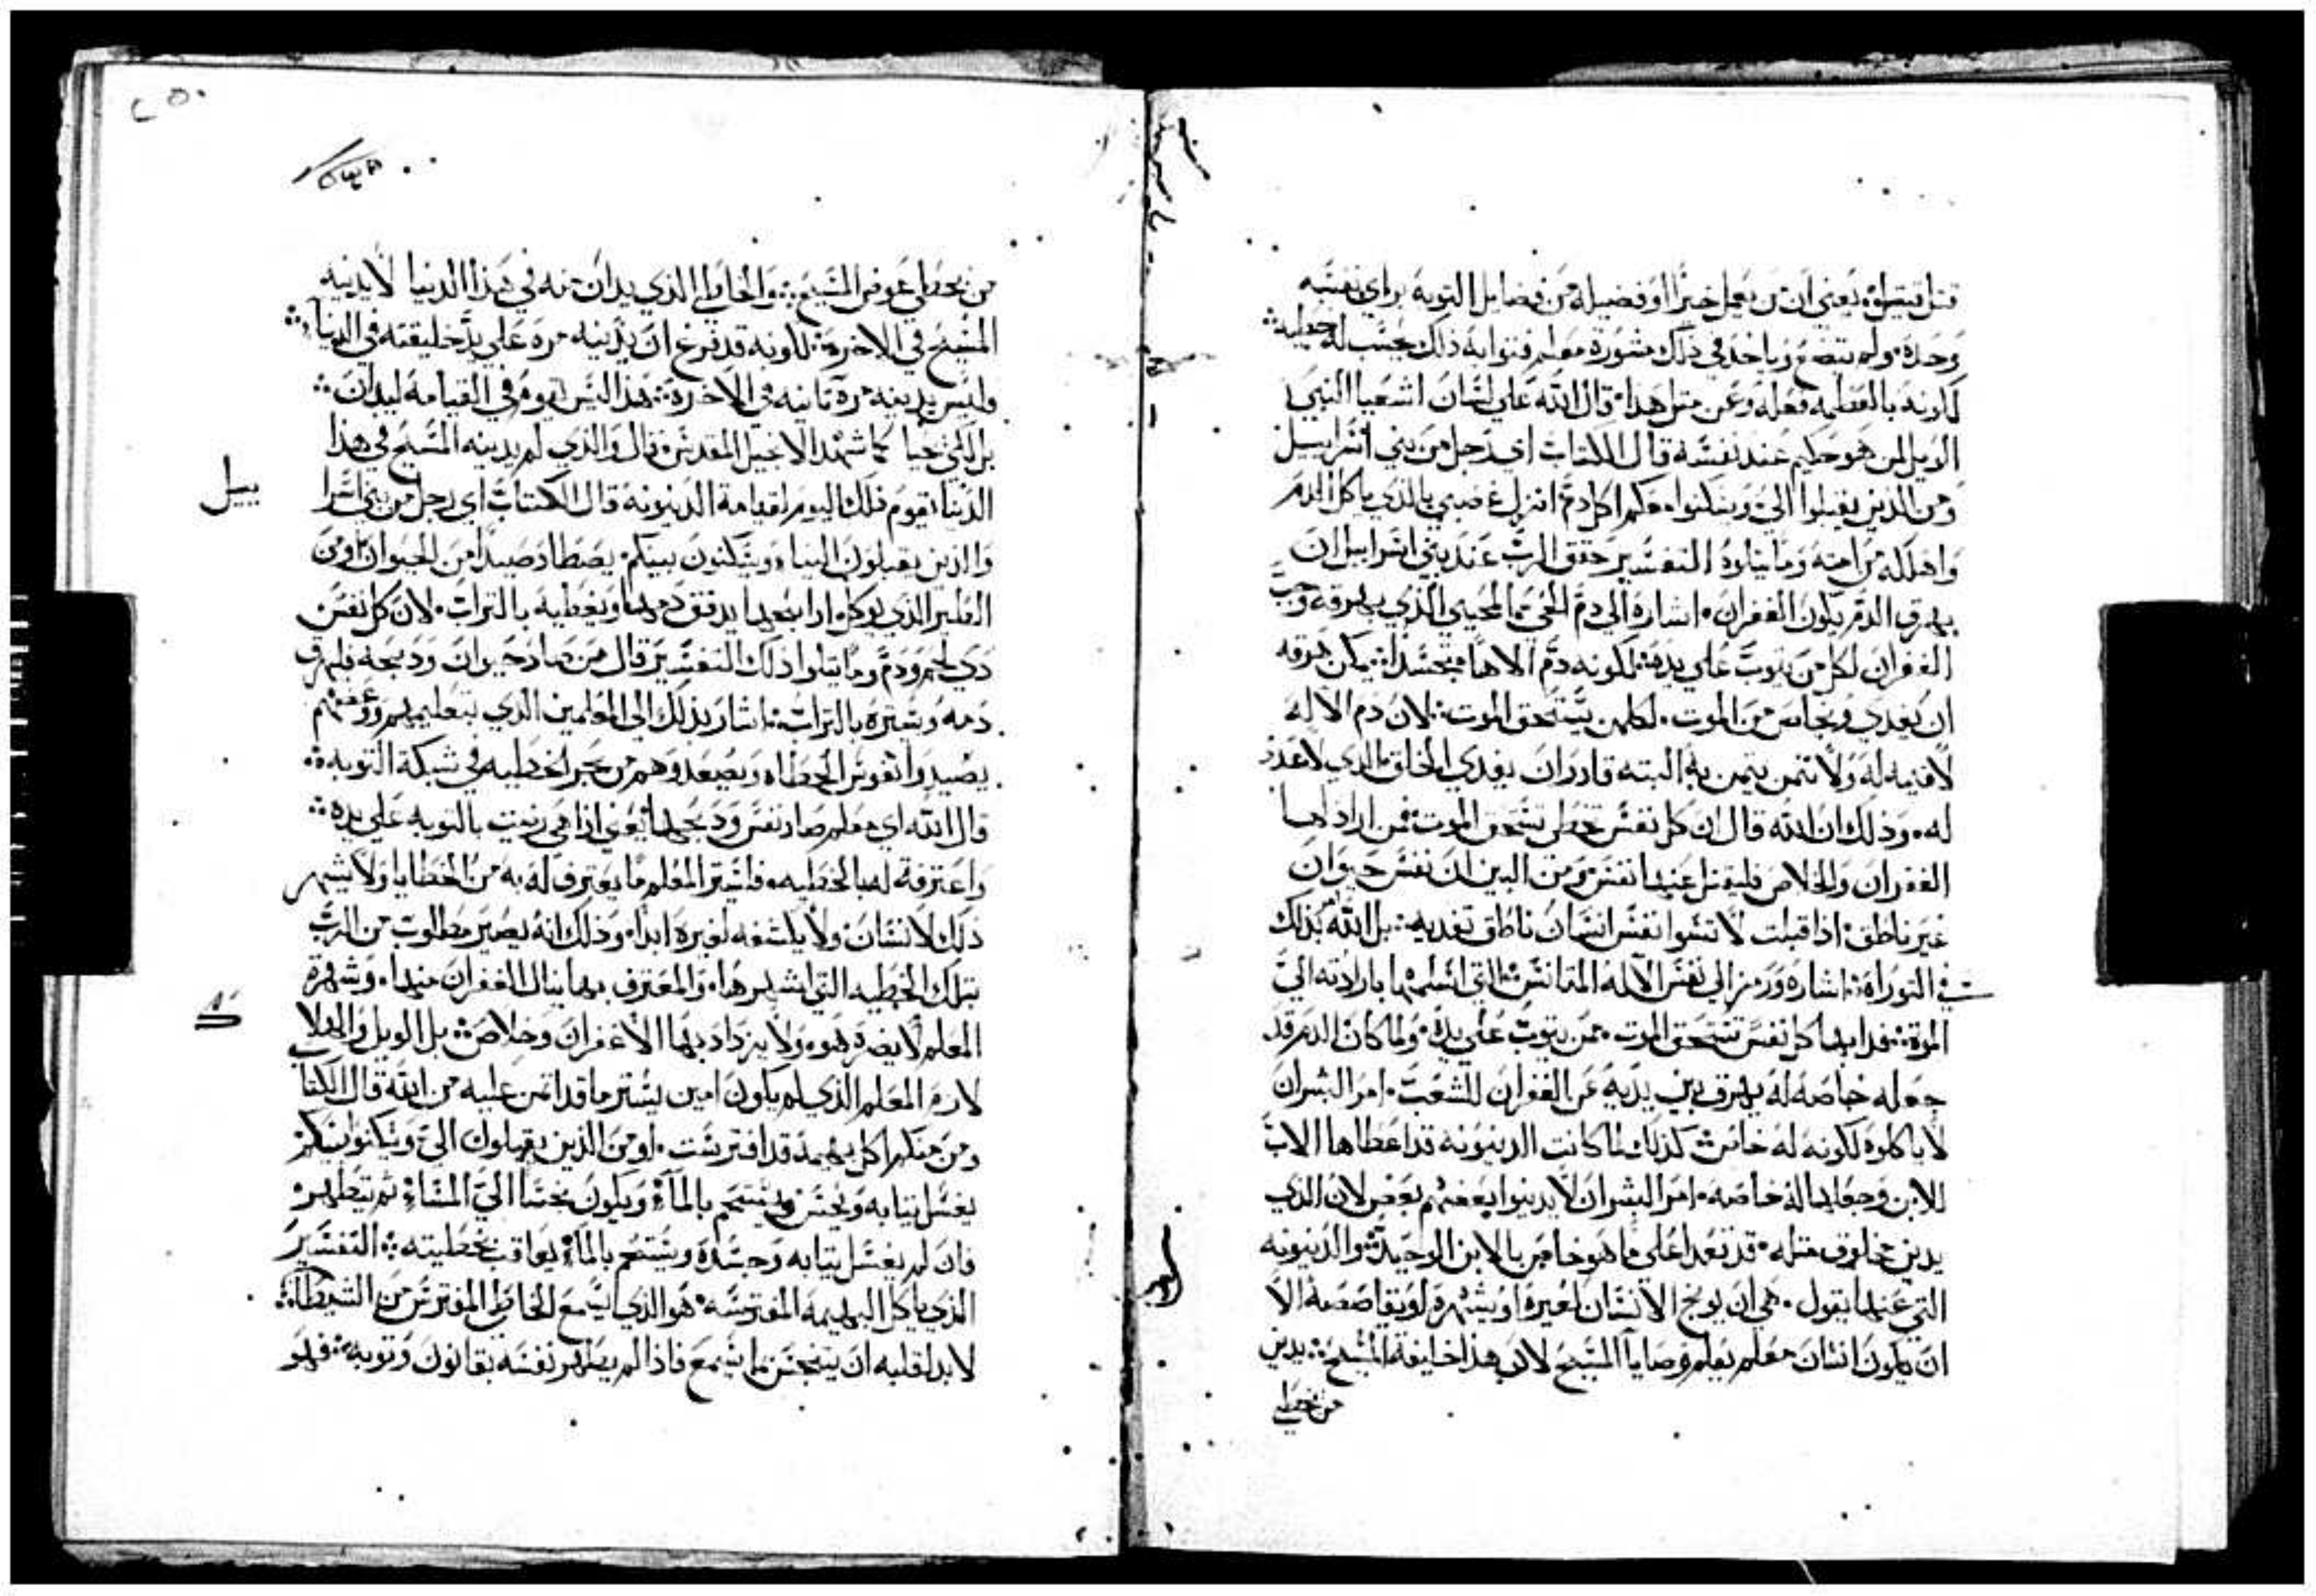 قتل قتيلوه يعني ان من يعمل خيرًا او فضيله من فضايل التوبه براي نفسه
وحده ولم يتضع وياخد في ذلك مشورة معلم فتوابه ذلك يحسب له خطيه
كلونه بالعظمه فعله وعن متل هذا قال الله على لسان اشعيا النبي
الويل لمن هو حكيم عند نفسه قال الكتاب اي رجل من بني اسراييل
ومن الذين يقبلوا الي ويسكنوا معكم اكل دم انزل غضبي بالذي ياكل الدم
واهلكه من امته وما يتلوه التفسير حقق الرب عند بني اسراييل ان
بهرق الدم يكون الغفران اشاره الي دم الحي المحيي الذي بهرقه وجب
الغفران لكل من يتوب علي يده لكونه دم الاهًا متجسدا يمكن هرقه
ان يفدي ويخلص من الموت لكلمن يستحق الموت لان دم الاله
لا قيمه له ولا تمن يتمن به البته قادر ان يفدي الخلق الذي لا عدد
له وذلك ان الله قال ان كل نفس تخطي تستحق الموت فمن اراد لها
الغفران والخلاص فليقتل عنها نفس ومن البين ان نفس حيوان
غير ناطق اذا قبلت لا تسوا نفس انسان ناطق تفديه بل الله امر بذلك
في التوراة اشاره ورمز الي نفس الاله المتانس التي اسلمها بارادته الي
الموة ففدا بها كل نفس تستحق الموت ممن يتوب علي يده ولما كان الدم قد
جعله خاصه له يهرق بين يديه عن الغفران للشعب امر البشر ان
لا ياكلوه لكونه له خاص كذلك لما كانت الدينونه قد اعطاها الاب
للابن وجعلها له خاصه امر البشر ان لا يدينوا بعضهم بعض لان الذي
يدين مخلوق متله قد تعدا علي ما هو خاص بالابن الوحيد والدينونه
التي عنها يقول هي ان يوبخ الانسان لغيره او يشهره او يقاصصه الا
ان يكون انسان معلم يعلم وصايا المسيح لان هذا خليفة المسيح يدين
من يخطي
٢٥٠
من يخطي عوض المسيح والخاطي الذي يدان منه في هذا الدنيا لا يدينه
المسيح في الاخرة لكونه قد فرغ ان يدينه مره علي يد خليفته في الدنيا
وليس يدينه مرة تانيه في الاخرة هذا ليس يقوم في القيامه ليدان
بل لكي يحيا كما شهد الانجيل المقدس وقال والذي لم يدينه المسيح في هذا
الدنيا يقوم ذلك اليوم لقيامة الدينونه قال الكتاب اي رجل من بني اسرا
ييل
والذين يقبلون الينا ويسكنون بينكم يصطاد صيدًا من الحيوان او من
الطير الذي يوكل اذا دبحها يدفق دمها ويغطيه بالتراب لان كل نفس
ذي لحم ودم وما يتلوا ذلك التفسير قال من صاد حيوان ودبحه فليهرق
دمه ويستره بالتراب اشار بذلك الي المعلمين الذي بتعليمهم ووعضهم
يصيدوا نفوس الخطاه ويصعدوهم من بحر الخطيه في شبكة التوبه
قال الله اي معلم صاد نفس ودبحها يعني اذا هي رضيت بالتوبه علي يده
واعترفة له بالخطيه فليستر المعلم ما يعترف له به من الخطايا ولا يشهر
ذلك لانسان ولا يكشفه لغيره ابدا وذلك انه يصير مطلوب من الرب
بتلك الخطيه التي اشهرها والمعترف بها ينال الغفران منها وشهرة
المعلم لا يضره هو ولا يزداد بها الا غفران وخلاص بل الويل والهلا
ك
لازم المعلم الذي لم يكون امين يستر ما قد اتمن عليه من الله قال الكتاب
ومن منكم اكل بهيمه قد افترست او من الذين يقبلون الي ويسكنوا بينكم
يغسل تيابه ويستحم بالماء ويكون نجسًا الي المساء تم يتطهر
فان لم يغسل تيابه وجسده ويستحم بالماء يعاقب بخطيته التفسير
الذي ياكل البهيمه المفترسه هو الذي يسمع الخاطي المفترس من الشيطان
لابد لقلبه ان يتنجس بما يسمع فاذا لم يطهر نفسه بقانون وتوبه فهو